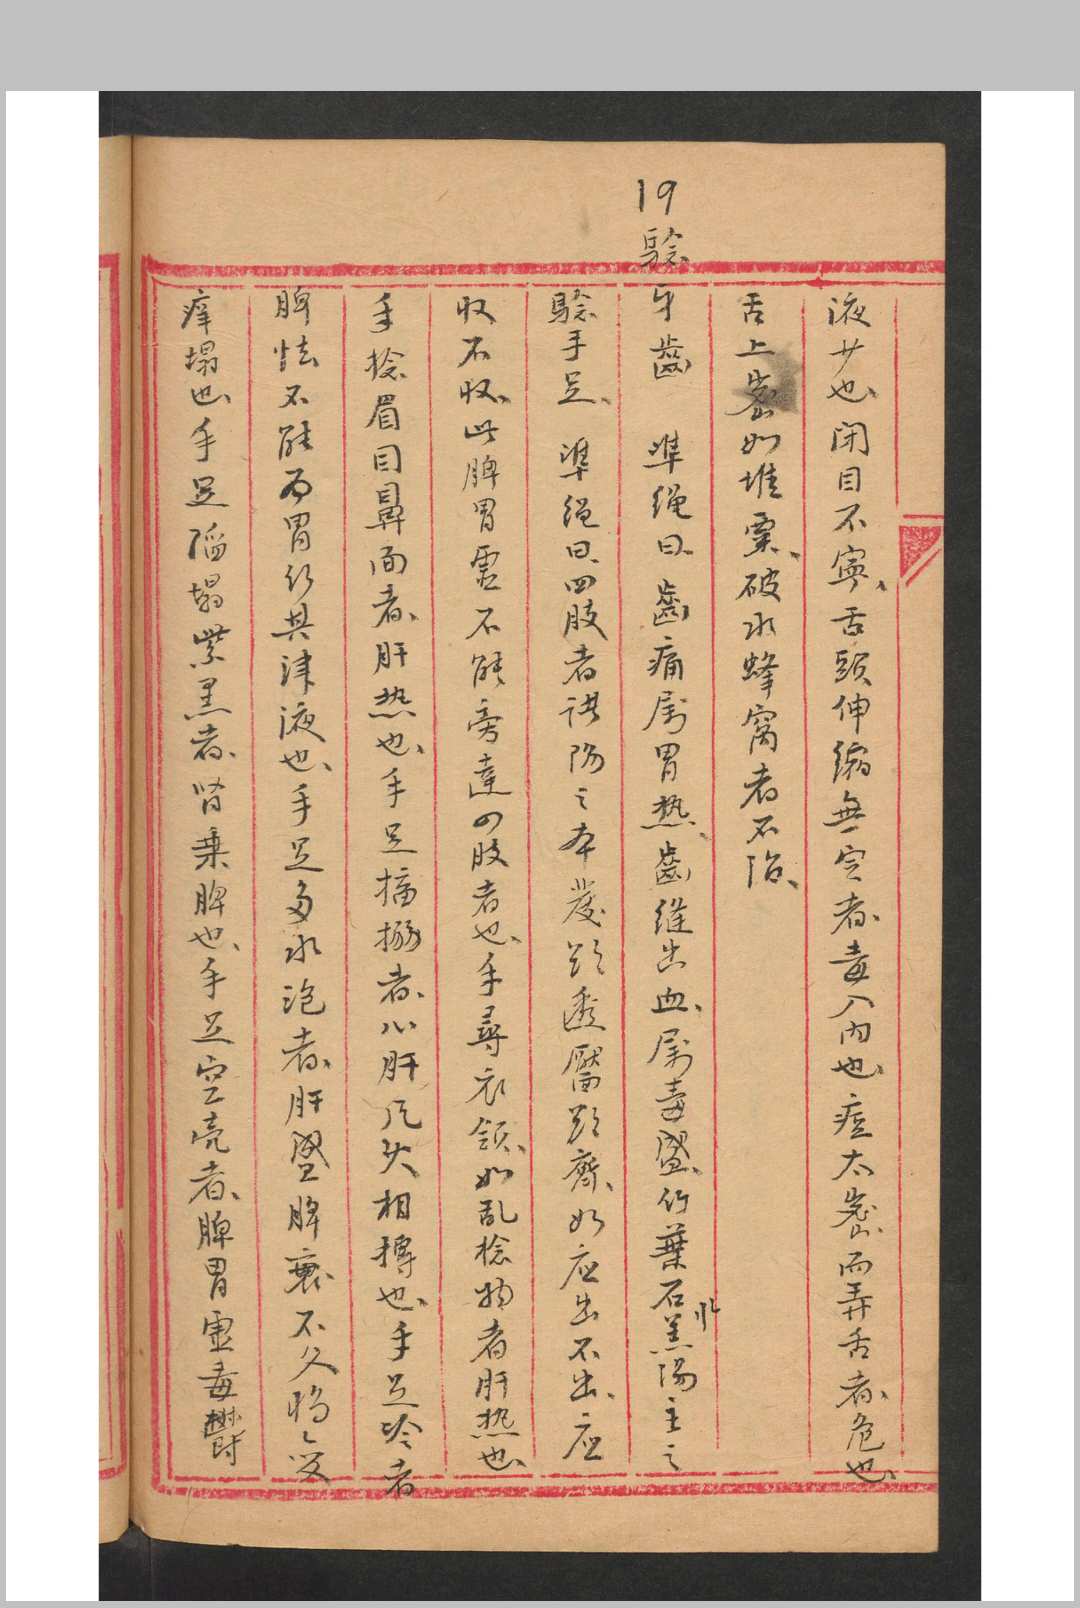 液少也、闭目不寧、舌頭伸縮無定者、毒入内也、痘太密而弄舌者、危也、
舌上密如堆粟、破水蜂窩者不治、
19
驗牙齒　準绳曰、齒痛屬胃热、齒縫出血、屬毒盛、竹葉石羔湯主之
驗手足、準绳曰、四肢者諸陽之本、發欲透、靨欲齊、如应出不出、应
收不收、此脾胃虚不能旁達四肢者也、手尋衣领、如乱捻物者肝热也、
手捻眉目鼻面者、肝热也、手足搐搦者、心肝风火相搏也、手足冷者
脾怯不能为胃行其津液也、手足多水泡者、肝盛脾衰、不久将变
痒塌也、手足陷塌紫黑者、肾乗脾也、手足空壳者、脾胃虚毒鬱